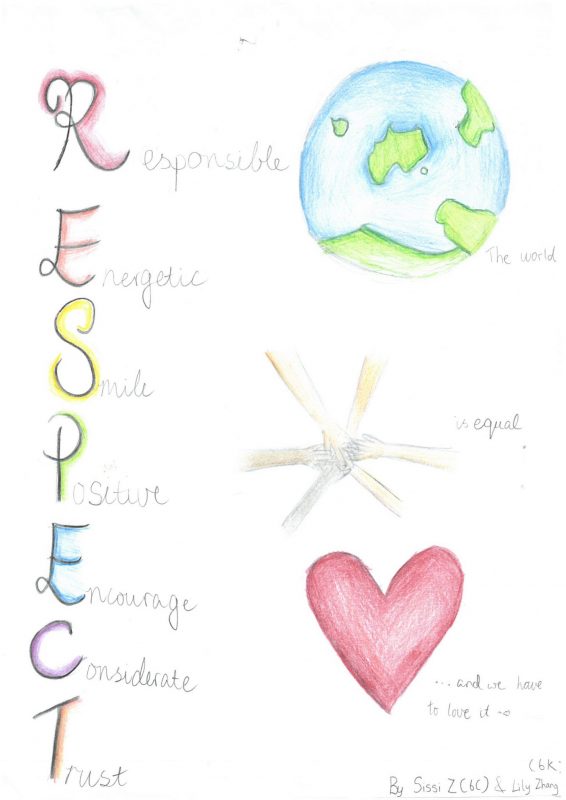 Responsible
Energetic
Smile
Positive
Encourage
Considerate
Trust
The world
is equal
...and we have
to love it
(6K)
By Sissi Z (6C) & Lily Zhang